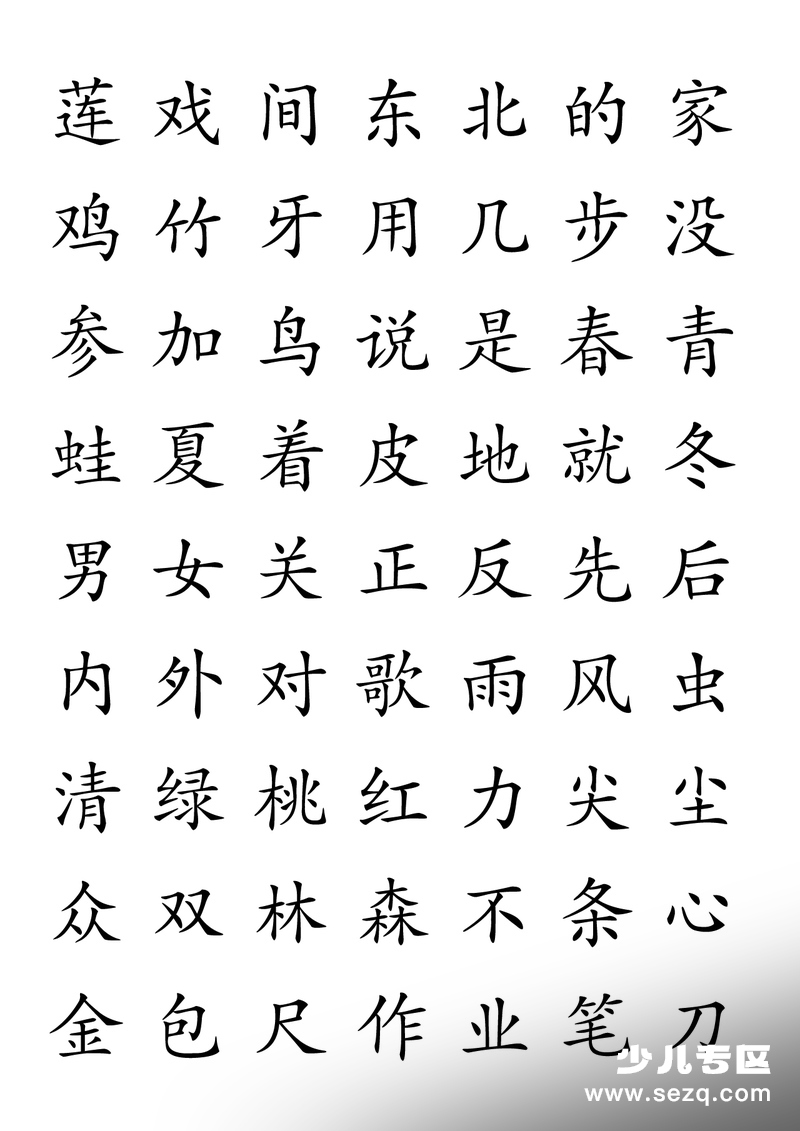 莲 戏 间 东 北 的 家
鸡 竹 牙 用 几 步 没
参 加 鸟 说 是 春 青
蛙 夏 着 皮 地 就 冬
男 女 关 正 反 先 后
内 外 对 歌 雨 风 虫
清 绿 桃 红 力 尖 尘
众 双 林 森 不 条 心
金 包 尺 作 业 笔 刀
少儿专区
www.sezq.com